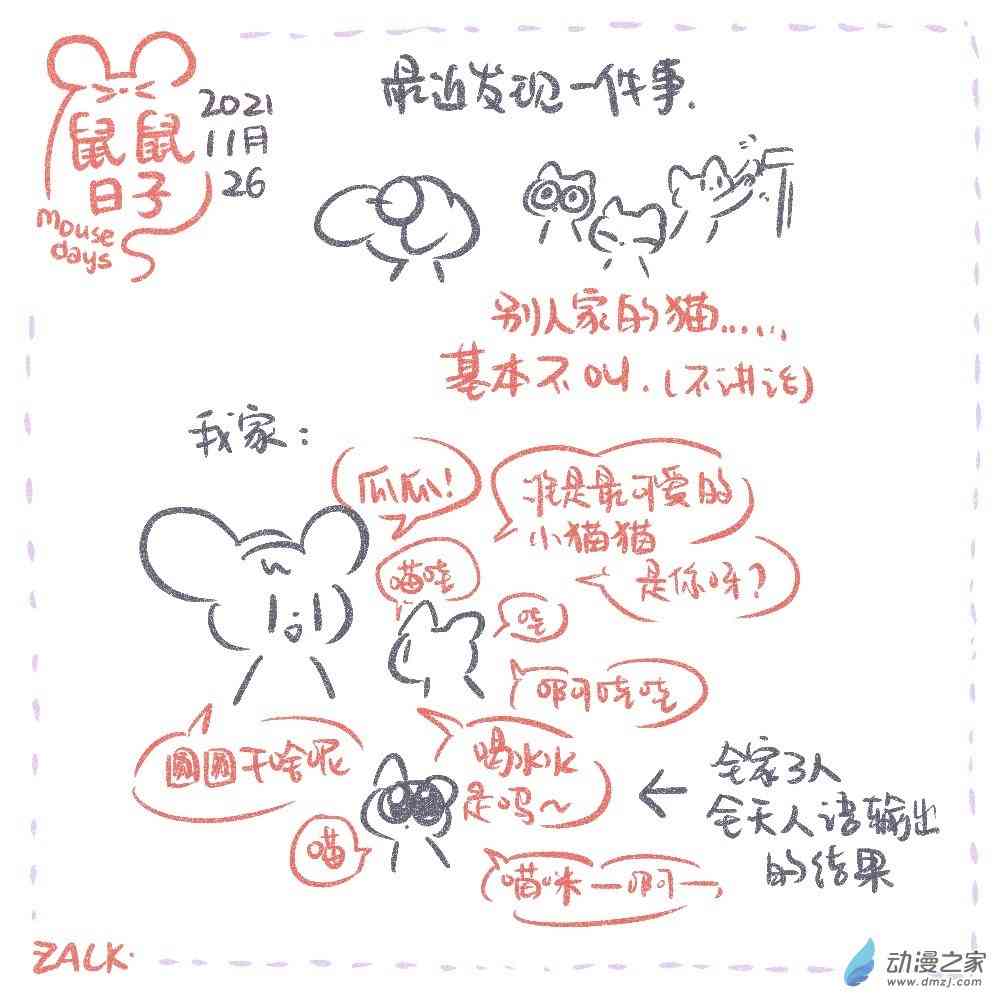 鼠鼠
日子
mouse
days
2021
11月
26
最近发现一件事.
别人家的猫......
基本不叫.(不讲话)
我家:
瓜瓜!
谁是最可爱的
小猫猫
是你呀?
喵哇
哇
啊哇哇
圆圆干啥呢
喝水水
是吗~
喵
喵咪一啊一,
全家3人
全天人语输出
的结果
ZALK.
动漫之家
www.dmzj.com